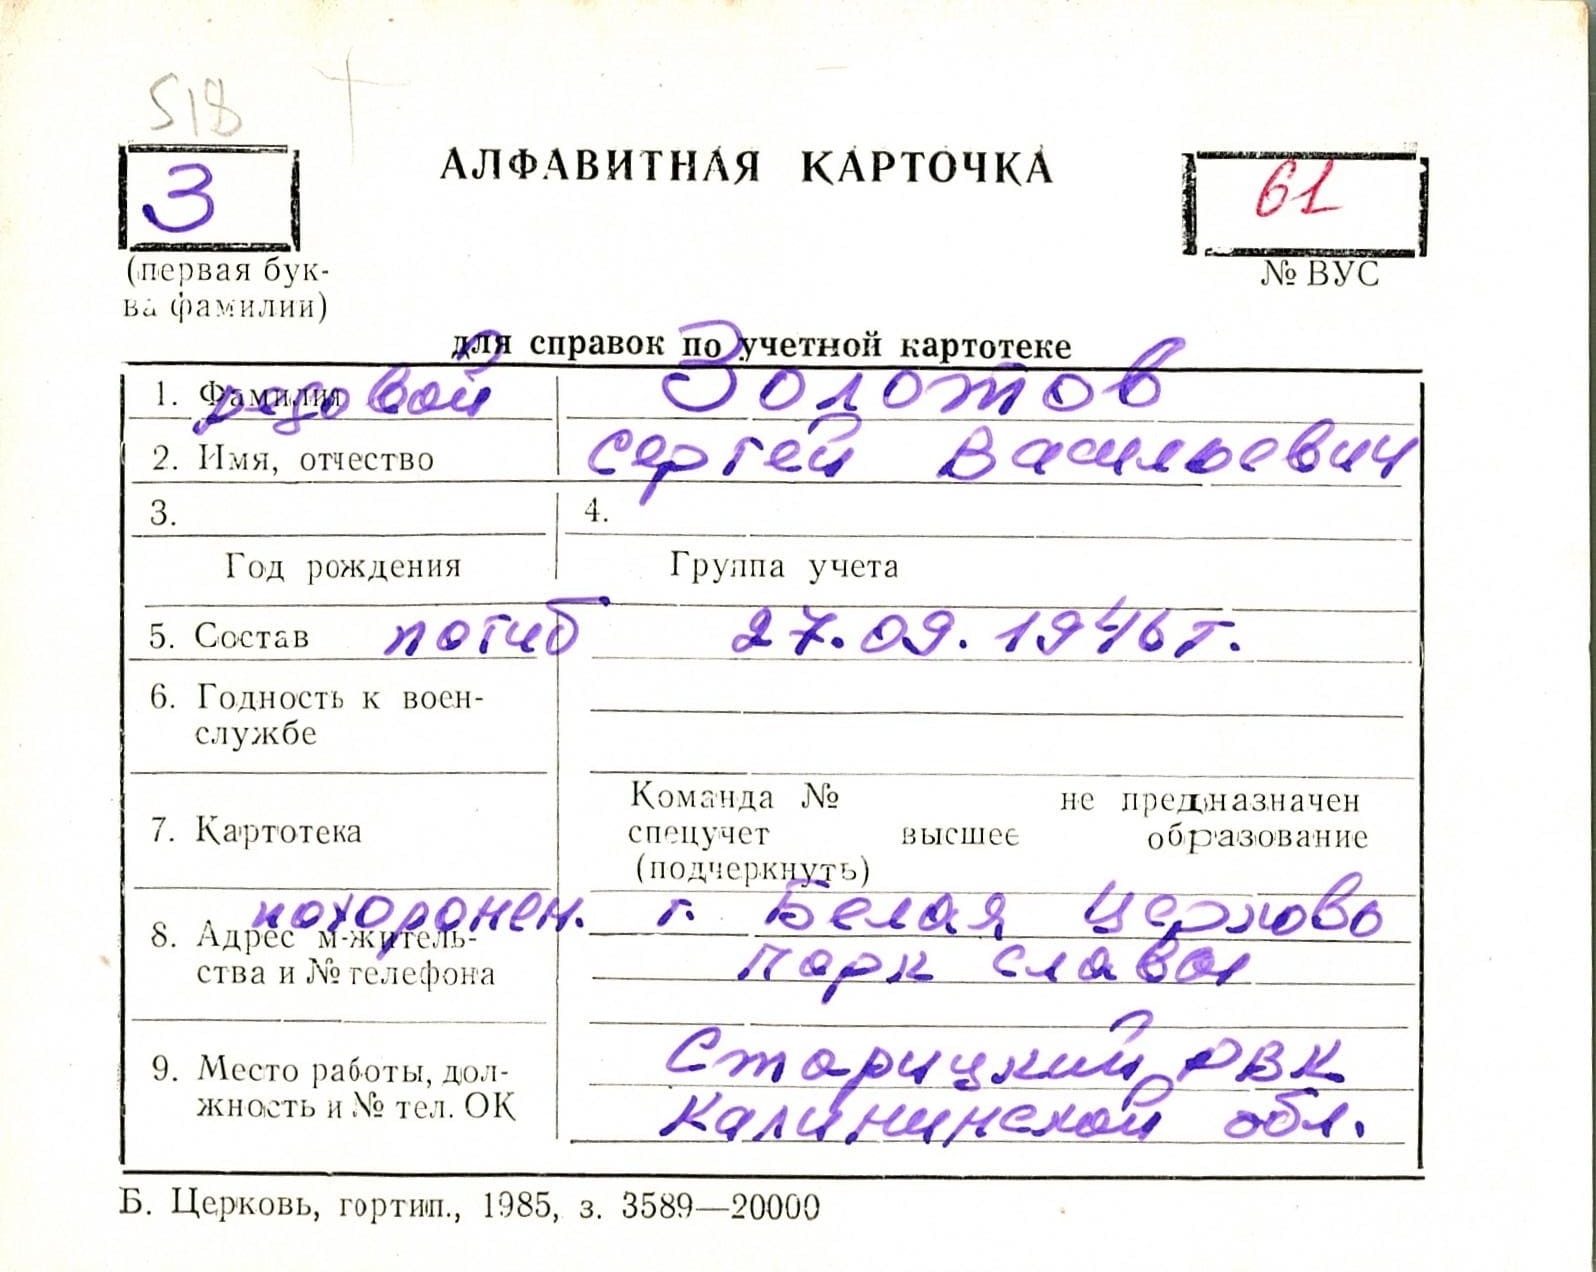 518
З
АЛФАВИТНАЯ КАРТОЧКА
61
(первая бук-
ва фамилии)
№ ВУС
для справок по учетной картотеке
1. Фамилия рядовой Золотов
2. Имя, отчество Сергей Васильевич
3. 4.
Год рождения Группа учета
5. Состав погиб 27.09.1946г.
6. Годность к воен-
службе
Команда № не предназначен
7. Картотека спецучет высшее образование
(подчеркнуть)
похоронен. г. Белая Церковь
8. Адрес м-житель-
ства и № телефона парк славы
9. Место работы, дол- Старицкий РВК
жность и № тел. ОК Калининской обл.
Б. Церковь, гортип., 1985, з. 3589—20000